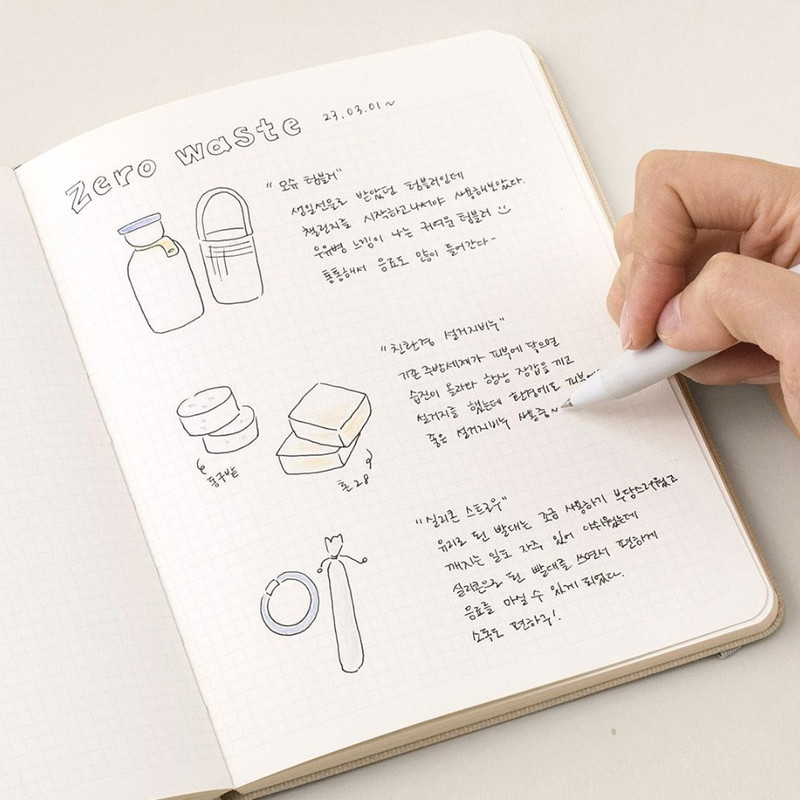 Zero waste 23.03.01~
"오슈 텀블러"
생일선물로 받았던 텀블러인데
챌린지를 시작하고나서야 사용해보았다.
우유병 느낌이 나는 귀여운 텀블러
통통해서 음료도 많이 들어간다~
"친환경 설거지비누"
기존 주방세제가 피부에 닿으면
습진이 올라와 항상 장갑을 끼고
설거지를 했는데 환경에도 피부에
좋은 설거지비누 사용중~
동구밭
톤28
"실리콘 스트로우"
유리로 된 빨대는 조금 사용하기 부담스러웠고
깨지는 일도 자주 있어 아쉬웠는데
실리콘으로 된 빨대를 쓰면서 편하게
음료를 마실 수 있게 되었다.
소독도 편하구!